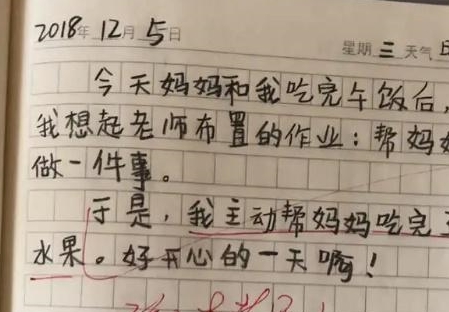 2018年 12月 5日
星期 三 天气
今天妈妈和我吃完午饭后,
我想起老师布置的作业：帮妈
做一件事。
于是，我主动帮妈妈吃完
水果。好开心的一天啊！